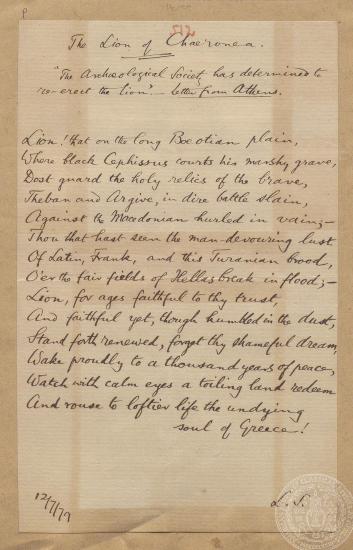 The Lion of Chaeronea.
"The Archæological Society has determined to
re-erect the Lion". — Letter from Athens.
Lion! that on the long Boeotian plain,
Where black Cephissus courts his marshy grave,
Dost guard the holy relics of the brave,
Theban and Argive, in dire battle slain,
Against the Macedonian hurled in vain;—
Thou that hast seen the man-devouring lust
Of Latin, Frank, and this Turanian brood,
O'er the fair fields of Hellas break in flood;—
Lion, for ages faithful to thy trust,
And faithful yet, though humbled in the dust,
Stand forth renewed, forget thy shameful dream,
Wake proudly to a thousand years of peace,
Watch with calm eyes a toiling land redeem
And rouse to loftier life the undying
soul of Greece!
12/7/79
L. S.